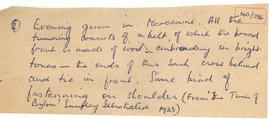 140/286
Evening gown in Marocaine. All the
trimming consists of a belt, of which the broad
front is made of wool embroidery in bright
tones — the ends of this sash cross behind
and tie in front. Same kind of
fastening on shoulder (From "The Times of
Ceylon" Sunday Illustrated 1923)